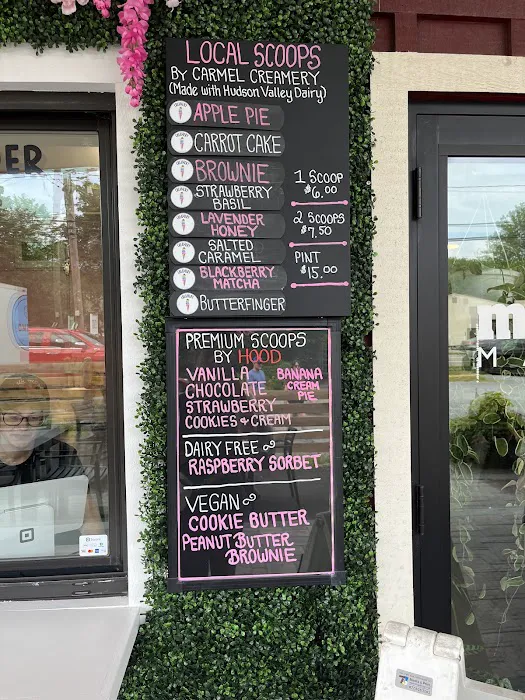 LOCAL SCOOPS
BY CARMEL CREAMERY
(Made with Hudson Valley Dairy)
APPLE PIE
CARROT CAKE
BROWNIE
STRAWBERRY
BASIL
LAVENDER
HONEY
SALTED
CARAMEL
BLACKBERRY
MATCHA
BUTTERFINGER
1 SCOOP
$6.00
2 SCOOPS
$7.50
PINT
$15.00
PREMIUM SCOOPS
BY HOOD
VANILLA
CHOCOLATE
STRAWBERRY
COOKIES & CREAM
BANANA
CREAM
PIE
DAIRY FREE
RASPBERRY SORBET
VEGAN
COOKIE BUTTER
PEANUT BUTTER
BROWNIE
DER
M